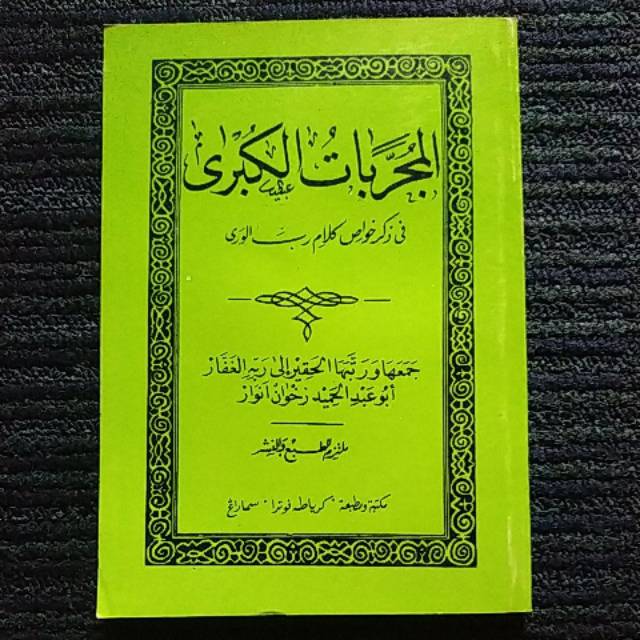 المُجَرَّبَاتُ الكُبْرَى
فى ذكر خواص كلام ربّ الورى
جَمَعَهَا وَرَتَّبَهَا الحَقِيْر إلى رَبِّهِ الغَفَّارْ
أبُو عَبْدِ الحَمِيْد رِضْوَانْ اَنْوَارْ
ملتزم الطبع والنشر
مكتبة ومطبعة . كرياطه فوترا . سماراڠ